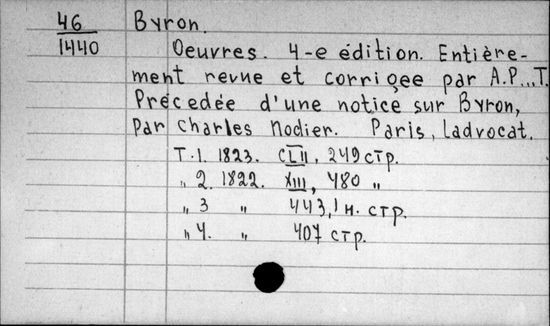 46 Byron.
1440 Oeuvres. 4-e édition. Entière-
ment revue et corrigee par A.P...T.
Précedée d'une notice sur Byron,
par Charles Nodier. Paris, Ladvocat.
Т.1. 1823. CLII, 249 стр.
„ 2. 1822. XIII, 480 „
„ 3 „ 443,1 н. стр.
„ 4. „ 407 стр.